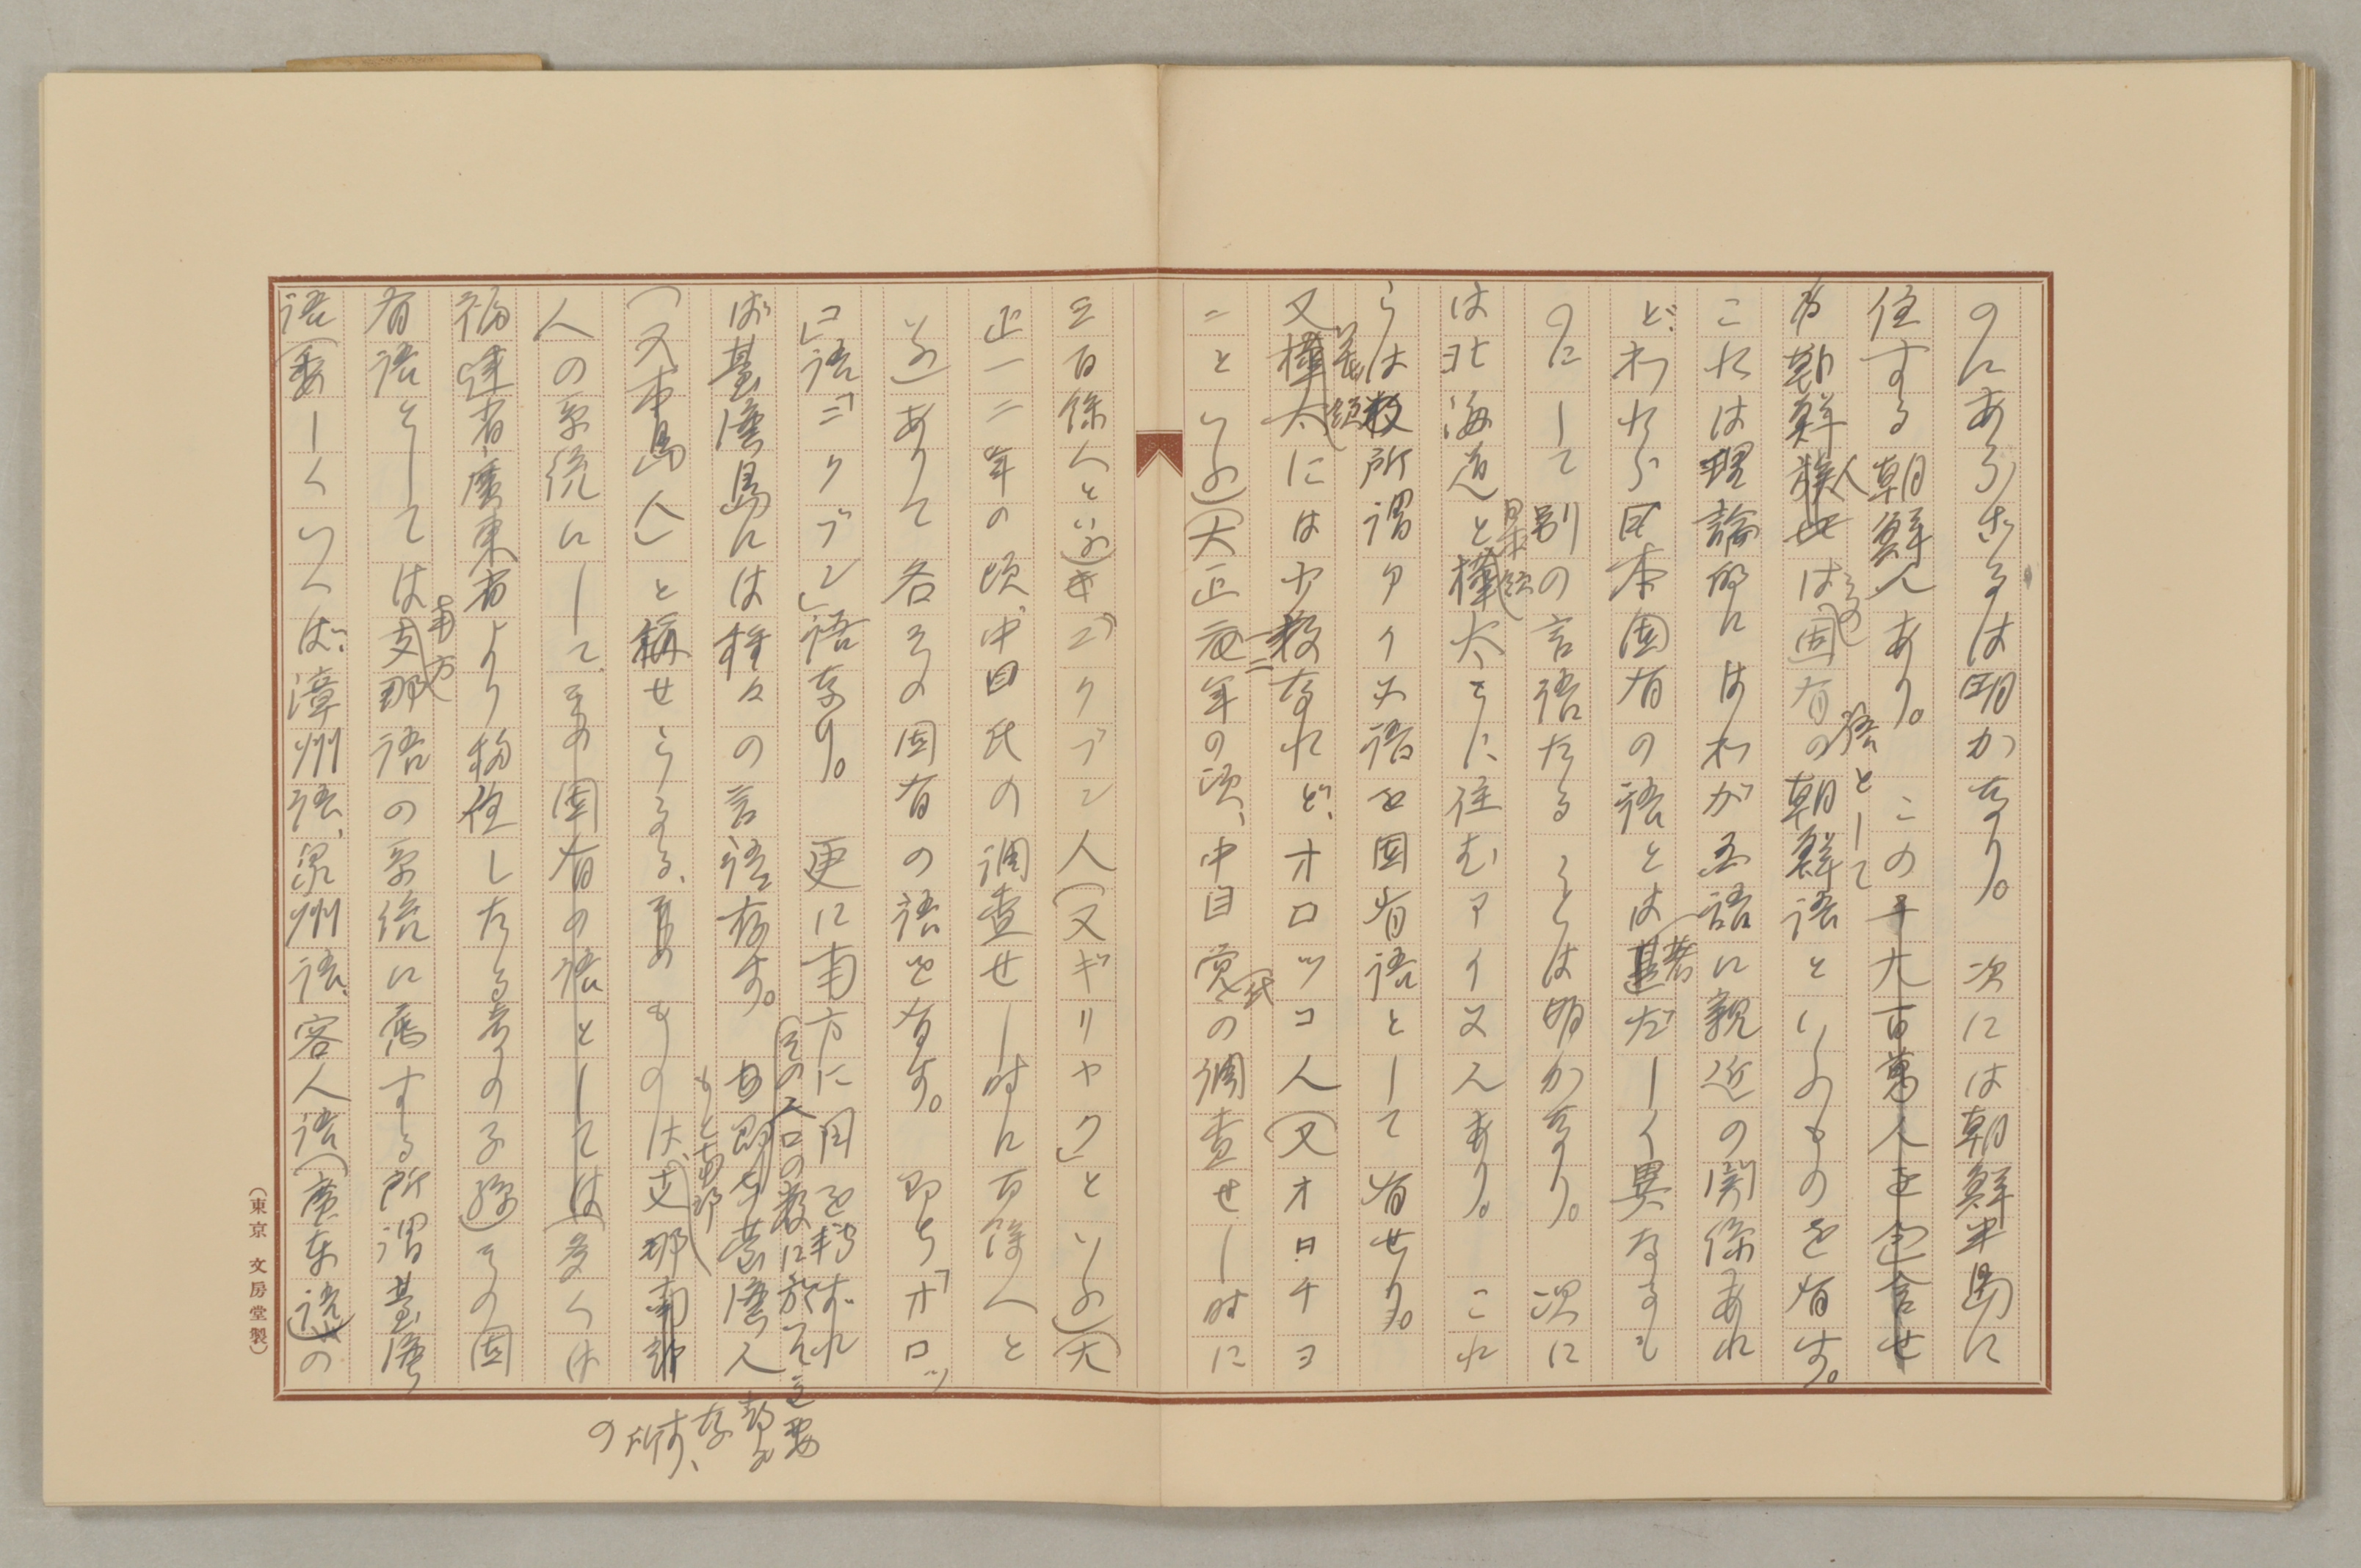 のにあらざるは明かなり。次には朝鮮半島に
住する朝鮮人あり。この千九百萬人を包含せ
る朝鮮族人は其の固有の語として朝鮮語といふものを有す。
これは理論的にはわが国語に親近の関係あれ
ど、われら日本固有の語とは甚だしく異なるも
のにして別の言語たることは明かなり。次に
は北海道と日本領樺太とに住むアイヌ人あり。これ
らは所謂アイヌ語を固有語として有せり。
又我領樺太には少数なれど、オロツコ人(又オロチヨ
ンといふ)(大正二年の頃、中目覚氏の調査せし時に
三百余人といふ)「ニクブン人(又ギリヤク」といふ)(大
正一二年の頃、中目氏の調査せし時に百余人と
いふ)ありて各その固有の語を有す。即ち「オロツ
コ」語「ニクブン」語なり。更に南方に目を転ずれ
ば臺湾島には種々の言語存す。その人口の数に於て主要
なるは臺湾人
(又本島人)と称せらるる、もと支那
人の系統にして、その固有の語としては多くは
福建省廣東省より移住したる者の子孫)その固
有語としては南方支那語の系統に属する所謂臺湾
語(委しくいへば、漳州語、泉州語、客人語(廣東語)の
(東京 文房堂製)